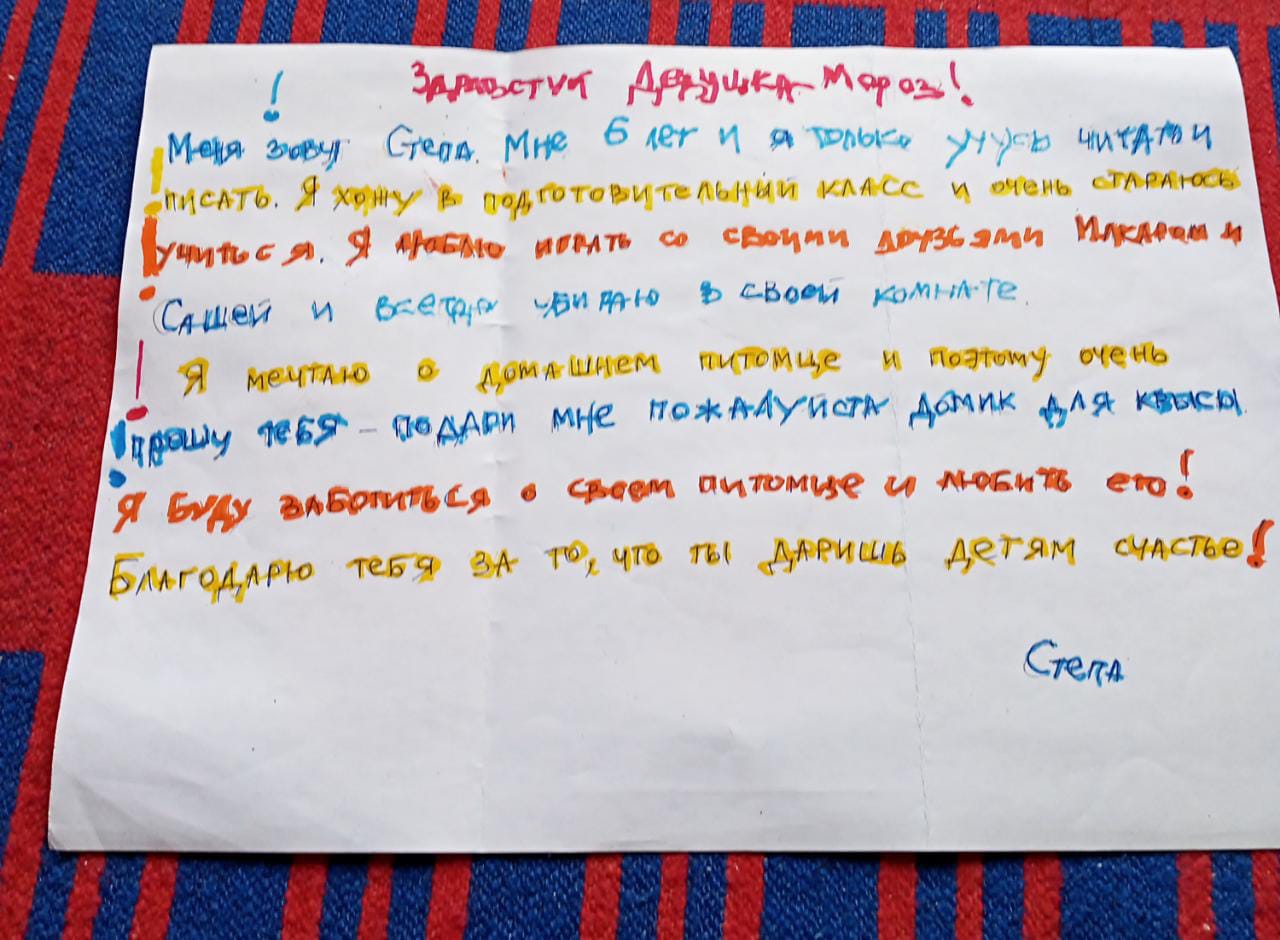 Здравствуй Дедушка Мороз!
Меня зовут Степа. Мне 6 лет и я только учусь читать и
писать. Я хожу в подготовительный класс и очень стараюсь
учиться. Я люблю играть со своими друзьями Макаром и
Сашей и всегда убираю в своей комнате.
Я мечтаю о домашнем питомце и поэтому очень
прошу тебя - подари мне пожалуйста домик для крысы.
Я буду заботиться о своем питомце и любить его!
Благодарю тебя за то, что ты даришь детям счастье!
Степа